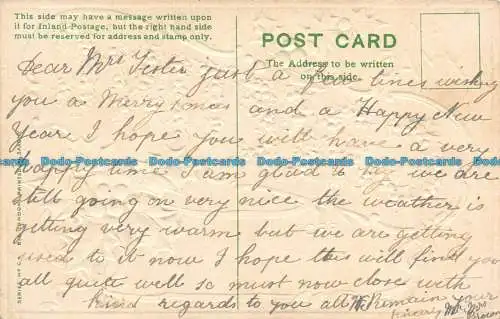 This side may have a message written upon
it for Inland-Postage, but the right hand side
must be reserved for address and stamp only.
POST CARD
The Address to be written
on this side.
Dear Mrs just a few lines wishing
you a Merry Xmas and a Happy New
Year I hope you will have a very
happy time I am glad to say we are
still going on very nice the weather is
getting very warm but we are getting
used to it now I hope this will find you
all quite well so must now close with
kind regards to you all Remain your
Mr Mrs
Bodo-Postcards Bodo-Postcards Bodo-Postcards Bodo-Postcards